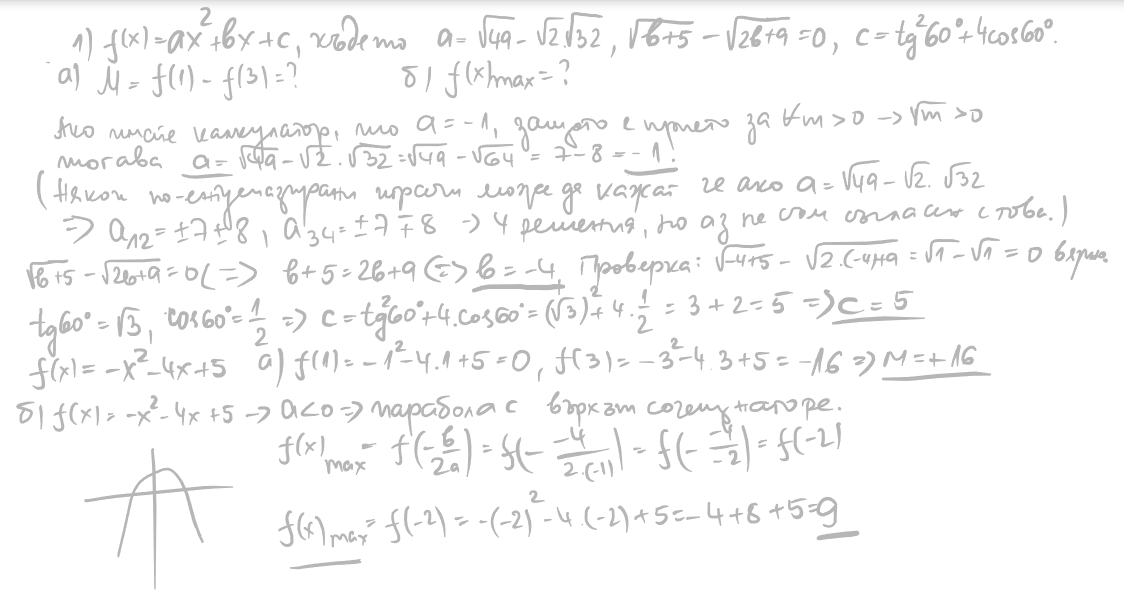 1) f(x)=ax²+bx+c, където a=√49-√2.√32, √b+5 - √2b+9=0, c=tg²60°+4cos60°.
а) M= f(1)-f(3)=? б) f(x)max=?
Ако имате калкулатор, то a=-1, защото е прието за ∀m>0 → √m >0
тогава a=√49-√2.√32=√49-√64 = 7-8 = -1.
(Някои по- играчи може да кажат че ако a=√49-√2.√32
=> a12=±7±8, a34=±7∓8 → 4 решения, но аз не съм съгласен с това.)
√b+5 - √2b+9=0 <=> b+5=2b+9 <=> b=-4, Проверка: √-4+5 - √2.(-4)+9 = √1-√1=0 вярно
tg60°=√3, cos60°=1/2 => c=tg²60°+4.cos60°=(√3)²+4.1/2 = 3+2=5 => c=5
f(x)=-x²-4x+5 а) f(1)=-1²-4.1+5=0, f(3)=-3²-4.3+5=-16 => M=+16
б) f(x)=-x²-4x+5 → a<0 => парабола с връхът сочещ нагоре.
f(x)max = f(-b/2a) = f(- -4/2.(-1)) = f(- -4/-2) = f(-2)
f(x)max = f(-2) = -(-2)²-4.(-2)+5=-4+8+5=9